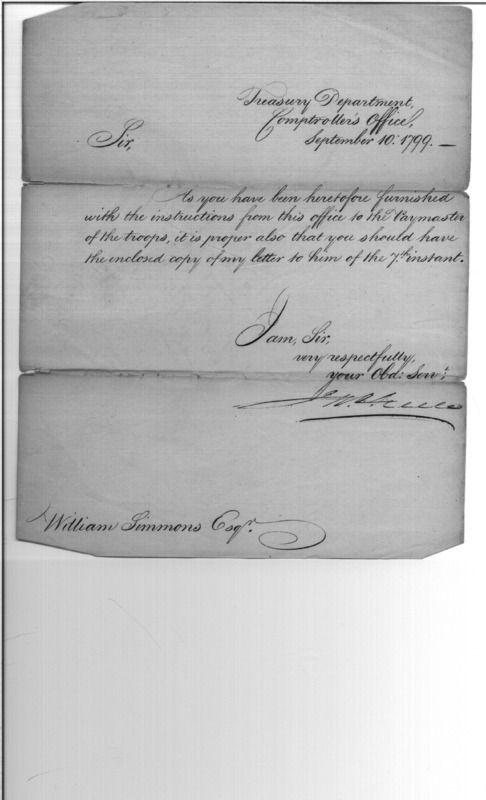 Treasury Department,
Comptroller's Office,
September 10th 1799. —
Sir,
As you have been heretofore furnished
with the instructions from this office to the Paymaster
of the troops, it is proper also that you should have
the enclosed copy of my letter to him of the 7th instant.
I am, Sir,
very respectfully,
your Obd: Serv:t
Jn. Steele
William Simmons Esqr.